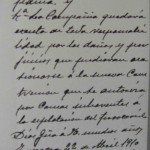 y
La Compañia quedará
exenta de toda responsabi
lidad por los daños y per
juicios que pudieran oca
sionarse á la nueva Cons
trucción que se autoriza
por Causas inherentes á
la explotación del ferrocarril
Dios gûe á V. muchos años
22 de Abril 1910